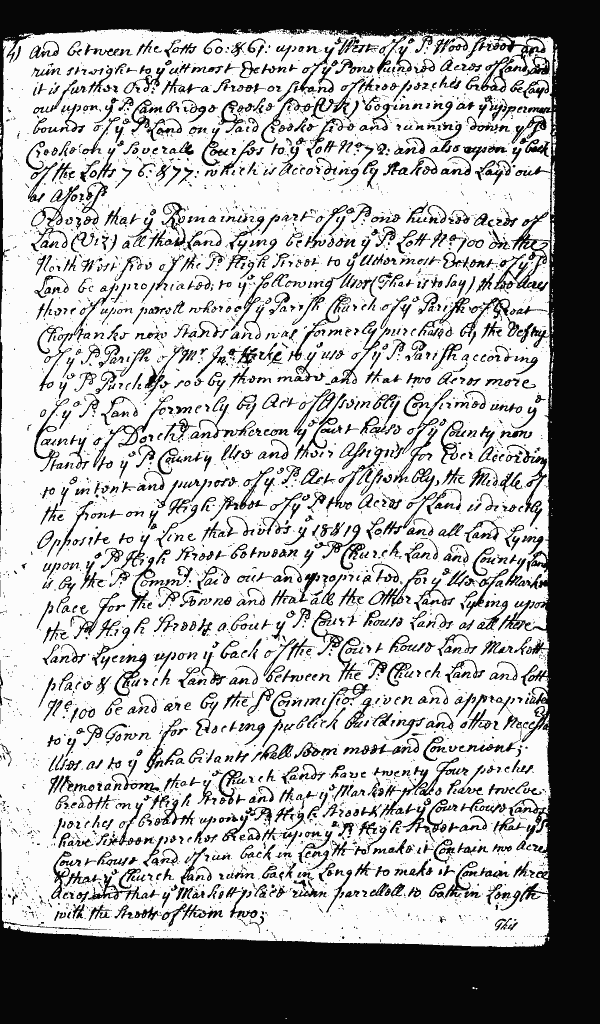 4) And between the Lotts 60: & 61: upon yᵉ West of yᵉ sᵈ Wood street and
run streight to yᵉ uttmost Extent of yᵉ sᵈ one hundred Acres of Land, and
it is further Ordᵈ that a Street or strand of three perches broad be Layd
out upon yᵉ sᵈ Cambridge Creeke side (Viz) beginning at yᵉ uppermost
bounds of yᵉ sᵈ Land on yᵉ said Creeke side and running down yᵉ sᵈ
Creeke on yᵉ severall Courses to yᵉ Lott Nᵒ 72: and also upon yᵉ back
of the Lotts 76: & 77: which is Accordingly staked and Layd out
as Aforesᵈ
Ordered that yᵉ Remaining part of yᵉ sᵈ one hundred Acres of
Land (Viz) all that Land Lying between yᵉ sᵈ Lott Nᵒ 100 on the
North West side of the sᵈ High Street to yᵉ Uttermost Extent of yᵉ sᵈ
Land be appropriated to yᵉ following Uses (That is to say) three Acres
thereof upon parcell whereof yᵉ Parish Church of yᵉ Parish of Great
Choptanke now Stands and was formerly purchased by the Vestry
of yᵉ sᵈ Parish of Mʳ Jnᵒ to yᵉ use of yᵉ sᵈ Parish according
to yᵉ sᵈ Purchase soe by them made and that two Acres more
of yᵉ sᵈ Land formerly by Act of Assembly Confirmed unto yᵉ
County of Dorchʳ and whereon yᵉ Court house of yᵉ County now
Stands to yᵉ sᵈ County Use and their Assigns for Ever According
to yᵉ intent and purpose of yᵉ sᵈ Act of Assembly, the Middle of
the front on yᵉ High street of yᵉ sᵈ two Acres of Land is directly
Opposite to yᵉ Line that divids yᵉ 18 & 19 Lotts and all Land Lying
upon yᵉ sᵈ High Street between yᵉ sᵈ Church Land and County Land
is by the sᵈ Commʳˢ Laid out and apropriated for yᵉ Use of a Market
place for the sᵈ Towne and that all the Other Lands Lyeing upon
the sᵈ High Streets about yᵉ sᵈ Court house Lands as all these
Lands Lyeing upon yᵉ back of the sᵈ Court house Lands Markett
place & Church Lands and between the sᵈ Church Lands and Lott
Nᵒ: 100 be and are by the sᵈ Commissioʳˢ given and appropriated
to yᵉ sᵈ Town for Erecting publick buildings and other Necessʳʸ
Uses as to yᵉ Inhabitants shall seem meet and Convenient;
Memorandum that yᵉ Church Lands have twenty four perches
breadth on yᵉ High Street and that yᵉ Markett place have twelve
perches of breadth upon yᵉ sᵈ High Street & that yᵉ Court house Lands
have sixteen perches breadth upon yᵉ sᵈ High Street and that yᵉ sᵈ
Court house Land of run back in Length to make it Contain two Acres
& that yᵉ Church Land runn back in Length to make it Contain three
Acres and that yᵉ Markett place runn parrellell to both in Length
with the Streets of them two;
This